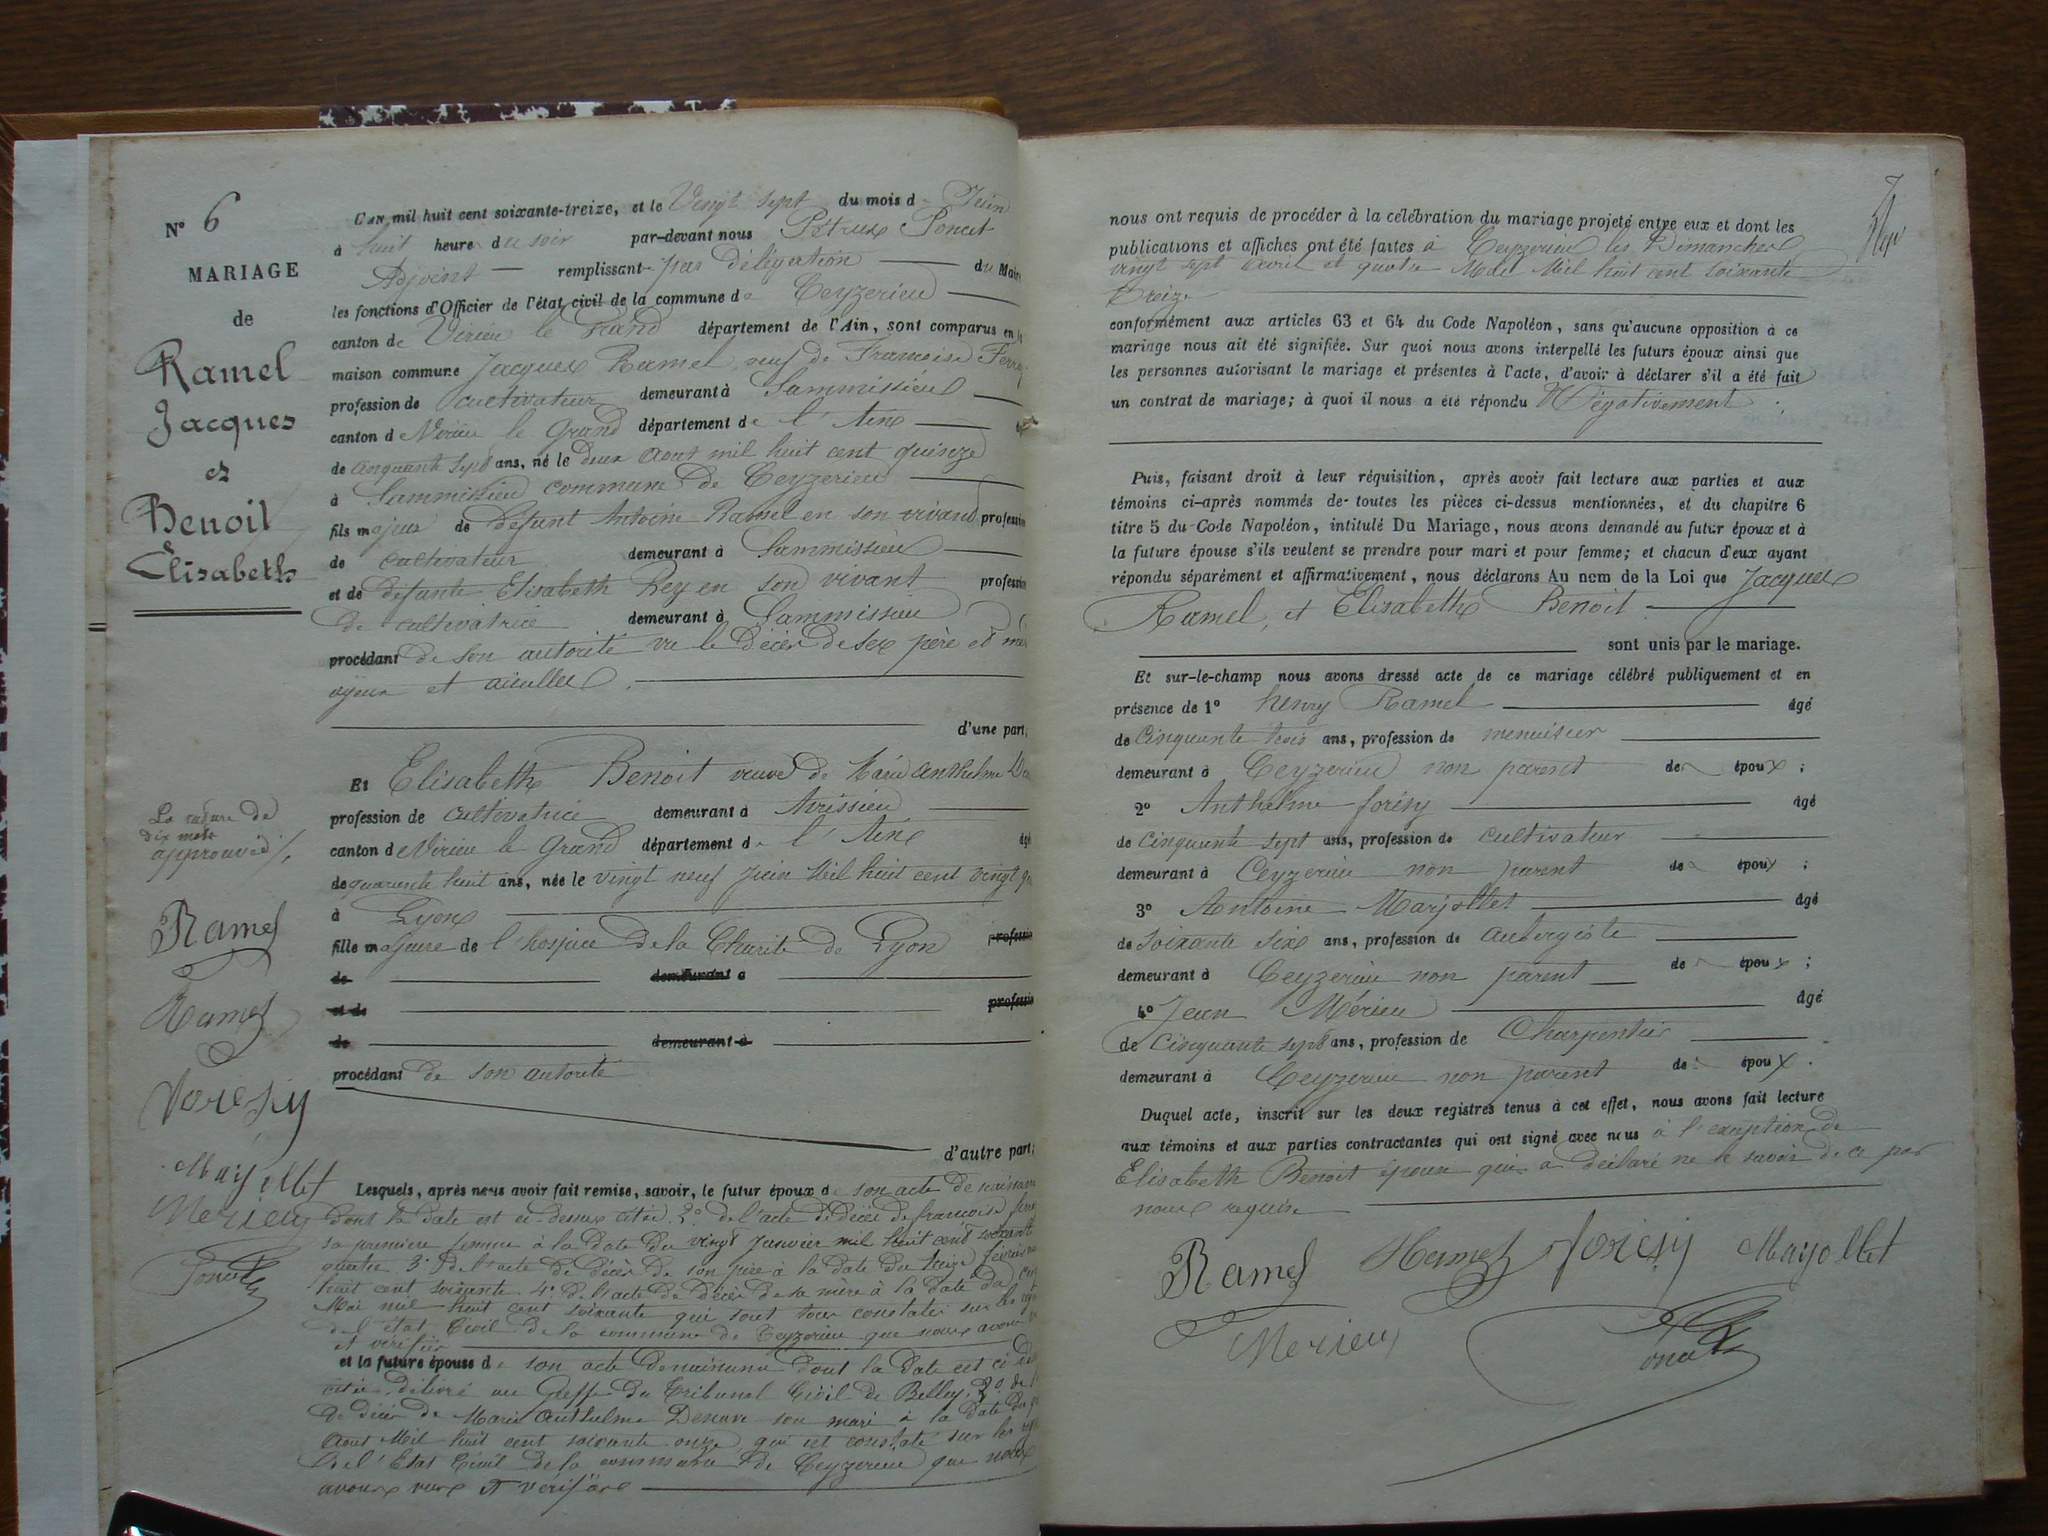 N° 6
MARIAGE
de
Ramel
Jacques
et
Benoit
Elisabeth
L'an mil huit cent soixante-treize, et le Vingt sept du mois de Juin
à huit heure du soir par-devant nous Pétrus Poncet
Adjoint remplissant par délégation du Maire
les fonctions d'Officier de l'état civil de la commune de Ceyzerieu
canton de Virieu le Grand département de l'Ain, sont comparus en la
maison commune Jacques Ramel veuf de Francoise
profession de cultivateur demeurant à Sammissieu
canton de Virieu le Grand département de l'Ain
de cinquante sept ans, né le deux Aout mil huit cent quinze
à Sammissieu commune de Ceyzerieu
fils majeur de défunt Antoine Ramel en son vivant profession
de cultivateur demeurant à Sammissieu
et de défunte Elisabeth Rey en son vivant profession
de cultivatrice demeurant à Sammissieu
procédant de son autorité vu le décès de ses père et mère
ayeux et aieulles
d'une part,
Et Elisabeth Benoit veuve de Marie Anthelme
profession de cultivatrice demeurant à Avrissieu
canton de Virieu le Grand département de l'Ain
de quarante huit ans, née le vingt neuf Juin Mil huit cent vingt
à Lyon
fille majeure de l'hospice de la Charité de Lyon profession
de demeurant à
et de profession
de demeurant à
procédant de son autorité
d'autre part,
La rature de
dix mots
approuvée
Ramel
Ramel
Forézy
Marjollet
Merieu
Poncet
Lesquels, après nous avoir fait remise, savoir, le futur époux de son acte de naissance
dont la date est ci-dessus citée 2° de l'acte de décès de francoise
sa première femme à la date du vingt Janvier mil huit cent soixante
quatre 3° de l'acte de décès de son père à la date du treize février
huit cent soixante 4° de l'acte de décès de sa mère à la date du
Mai mil huit cent soixante qui sont tous constatés sur les
de l'état Civil de la commune de Ceyzerieu que nous avons
et vérifiés
et la future épouse de son acte de naissance dont la date est ci
citée délivré au Greffe du Tribunal Civil de Belley, 2° de
de décès de Marie Anthelme Denave son mari à la date du
Aout Mil huit cent soixante onze qui est constaté sur les
de l'Etat Civil de la commune de Ceyzerieu que nous
avons vus et vérifiés
nous ont requis de procéder à la célébration du mariage projeté entre eux et dont les
publications et affiches ont été faites à Ceyzerieu les Dimanches
vingt sept Avril et quatre Mai Mil huit cent soixante
Treize
conformément aux articles 63 et 64 du Code Napoléon, sans qu'aucune opposition à ce
mariage nous ait été signifiée. Sur quoi nous avons interpellé les futurs époux ainsi que
les personnes autorisant le mariage et présentes à l'acte, d'avoir à déclarer s'il a été fait
un contrat de mariage; à quoi il nous a été répondu Négativement
Puis, faisant droit à leur réquisition, après avoir fait lecture aux parties et aux
témoins ci-après nommés de toutes les pièces ci-dessus mentionnées, et du chapitre 6
titre 5 du Code Napoléon, intitulé Du Mariage, nous avons demandé au futur époux et à
la future épouse s'ils veulent se prendre pour mari et pour femme; et chacun d'eux ayant
répondu séparément et affirmativement, nous déclarons Au nom de la Loi que Jacques
Ramel, et Elisabeth Benoit
sont unis par le mariage.
Et sur-le-champ nous avons dressé acte de ce mariage célébré publiquement et en
présence de 1° henry Ramel âgé
de Cinquante trois ans, profession de menuisier
demeurant à Ceyzerieu non parent des époux;
2° Anthelme forézy âgé
de Cinquante sept ans, profession de cultivateur
demeurant à Ceyzerieu non parent des époux;
3° Antoine Marjollet âgé
de soixante six ans, profession de aubergiste
demeurant à Ceyzerieu non parent des époux;
4° Jean Mérieu âgé
de Cinquante sept ans, profession de Charpentier
demeurant à Ceyzerieu non parent des époux.
Duquel acte, inscrit sur les deux registres tenus à cet effet, nous avons fait lecture
aux témoins et aux parties contractantes qui ont signé avec nous à l'exception de
Elisabeth Benoit épouse qui a déclaré ne le savoir de ce par
nous requise
Ramel Ramel forézy Marjollet
Merieu Poncet